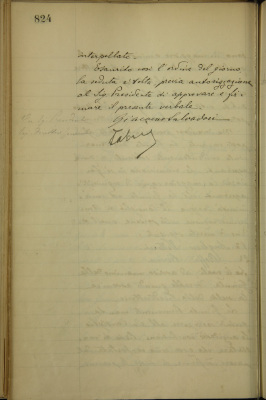 824
interpellato.
Esaurito così l'ordine del giorno
la seduta è tolta previa autorizzazione
al Sig. Presidente di approvare e fir-
mare il presente verbale.
Giacomo Salvadori